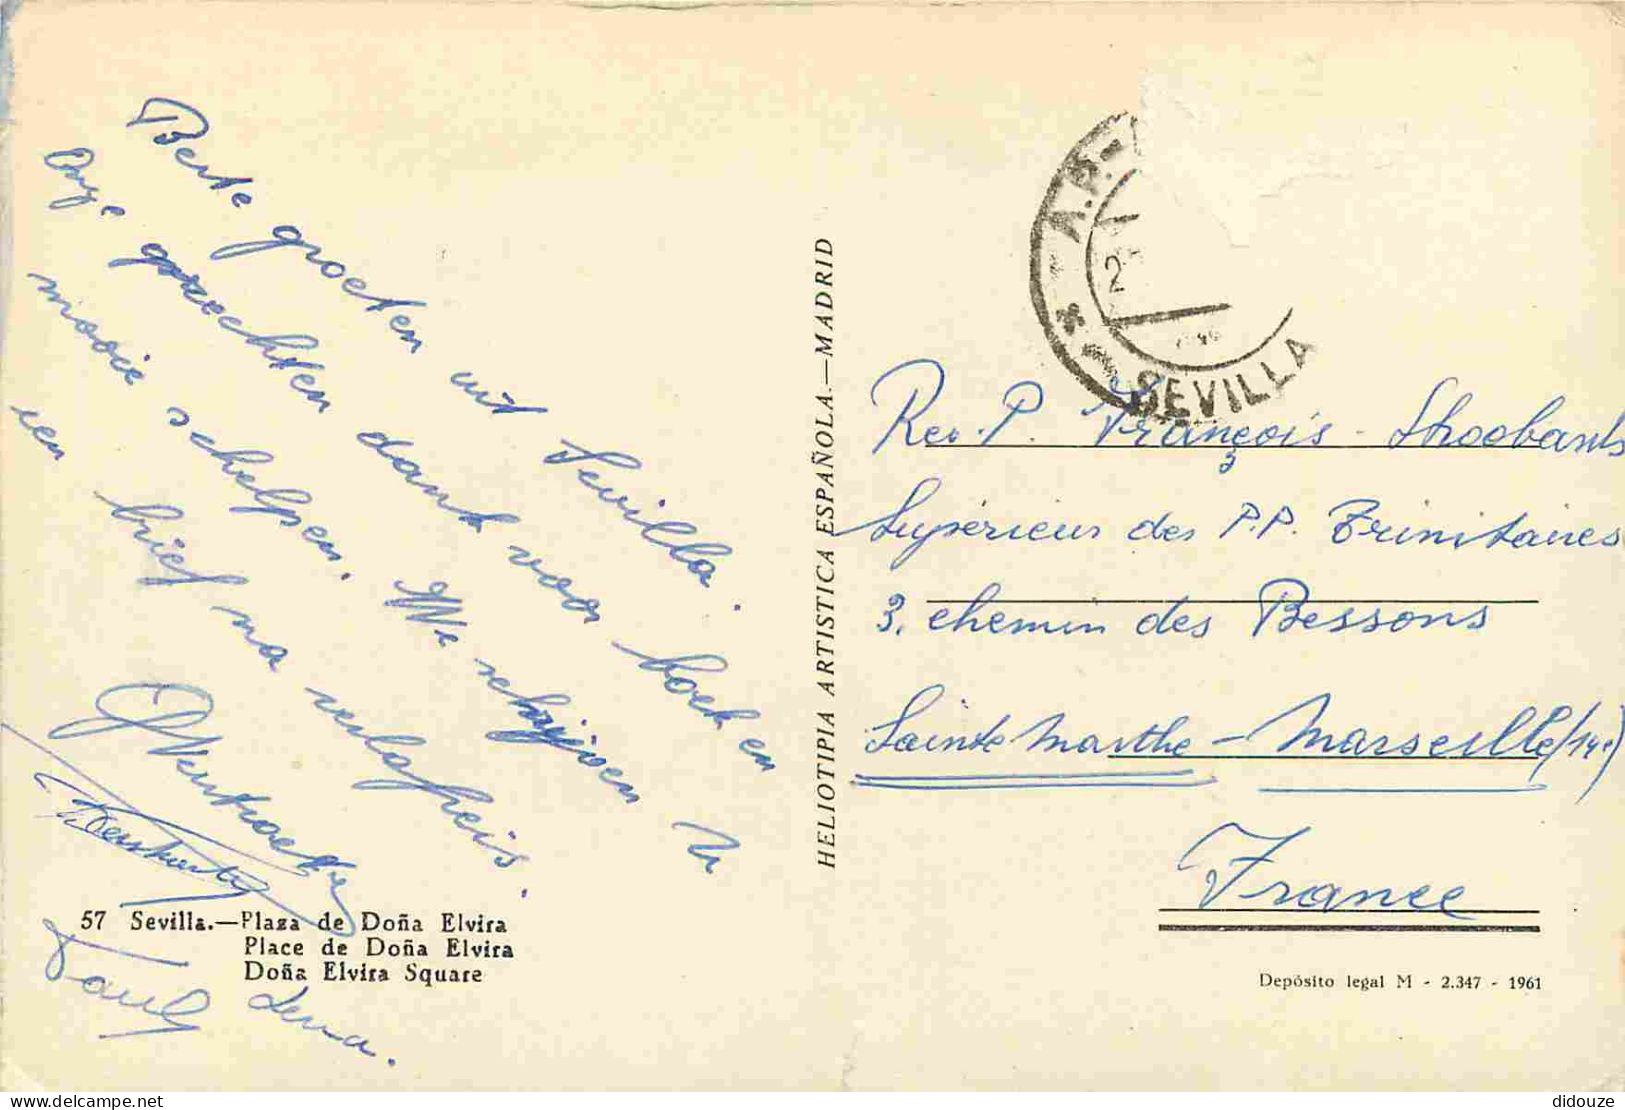 Beste groeten uit Sevilla.
Onze oprechten dank voor boek en
mooie schelpen. We schrijven U
een brief na verlofreis.
Pauly Lena.
57 Sevilla.—Plaza de Doña Elvira
Place de Doña Elvira
Doña Elvira Square
HELIOTIPIA ARTISTICA ESPAÑOLA.—MADRID
SEVILLA
Rev. P. François Stroobants
Supérieur des P.P. Trinitaires
3, chemin des Bessons
Sainte Marthe - Marseille (14e)
France
Depósito legal M - 2.347 - 1961
delcampe.net
didouze